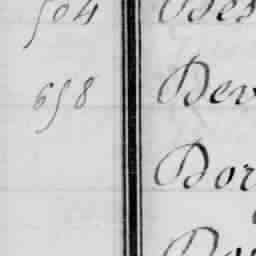 504 Des
658 Dev
Dor